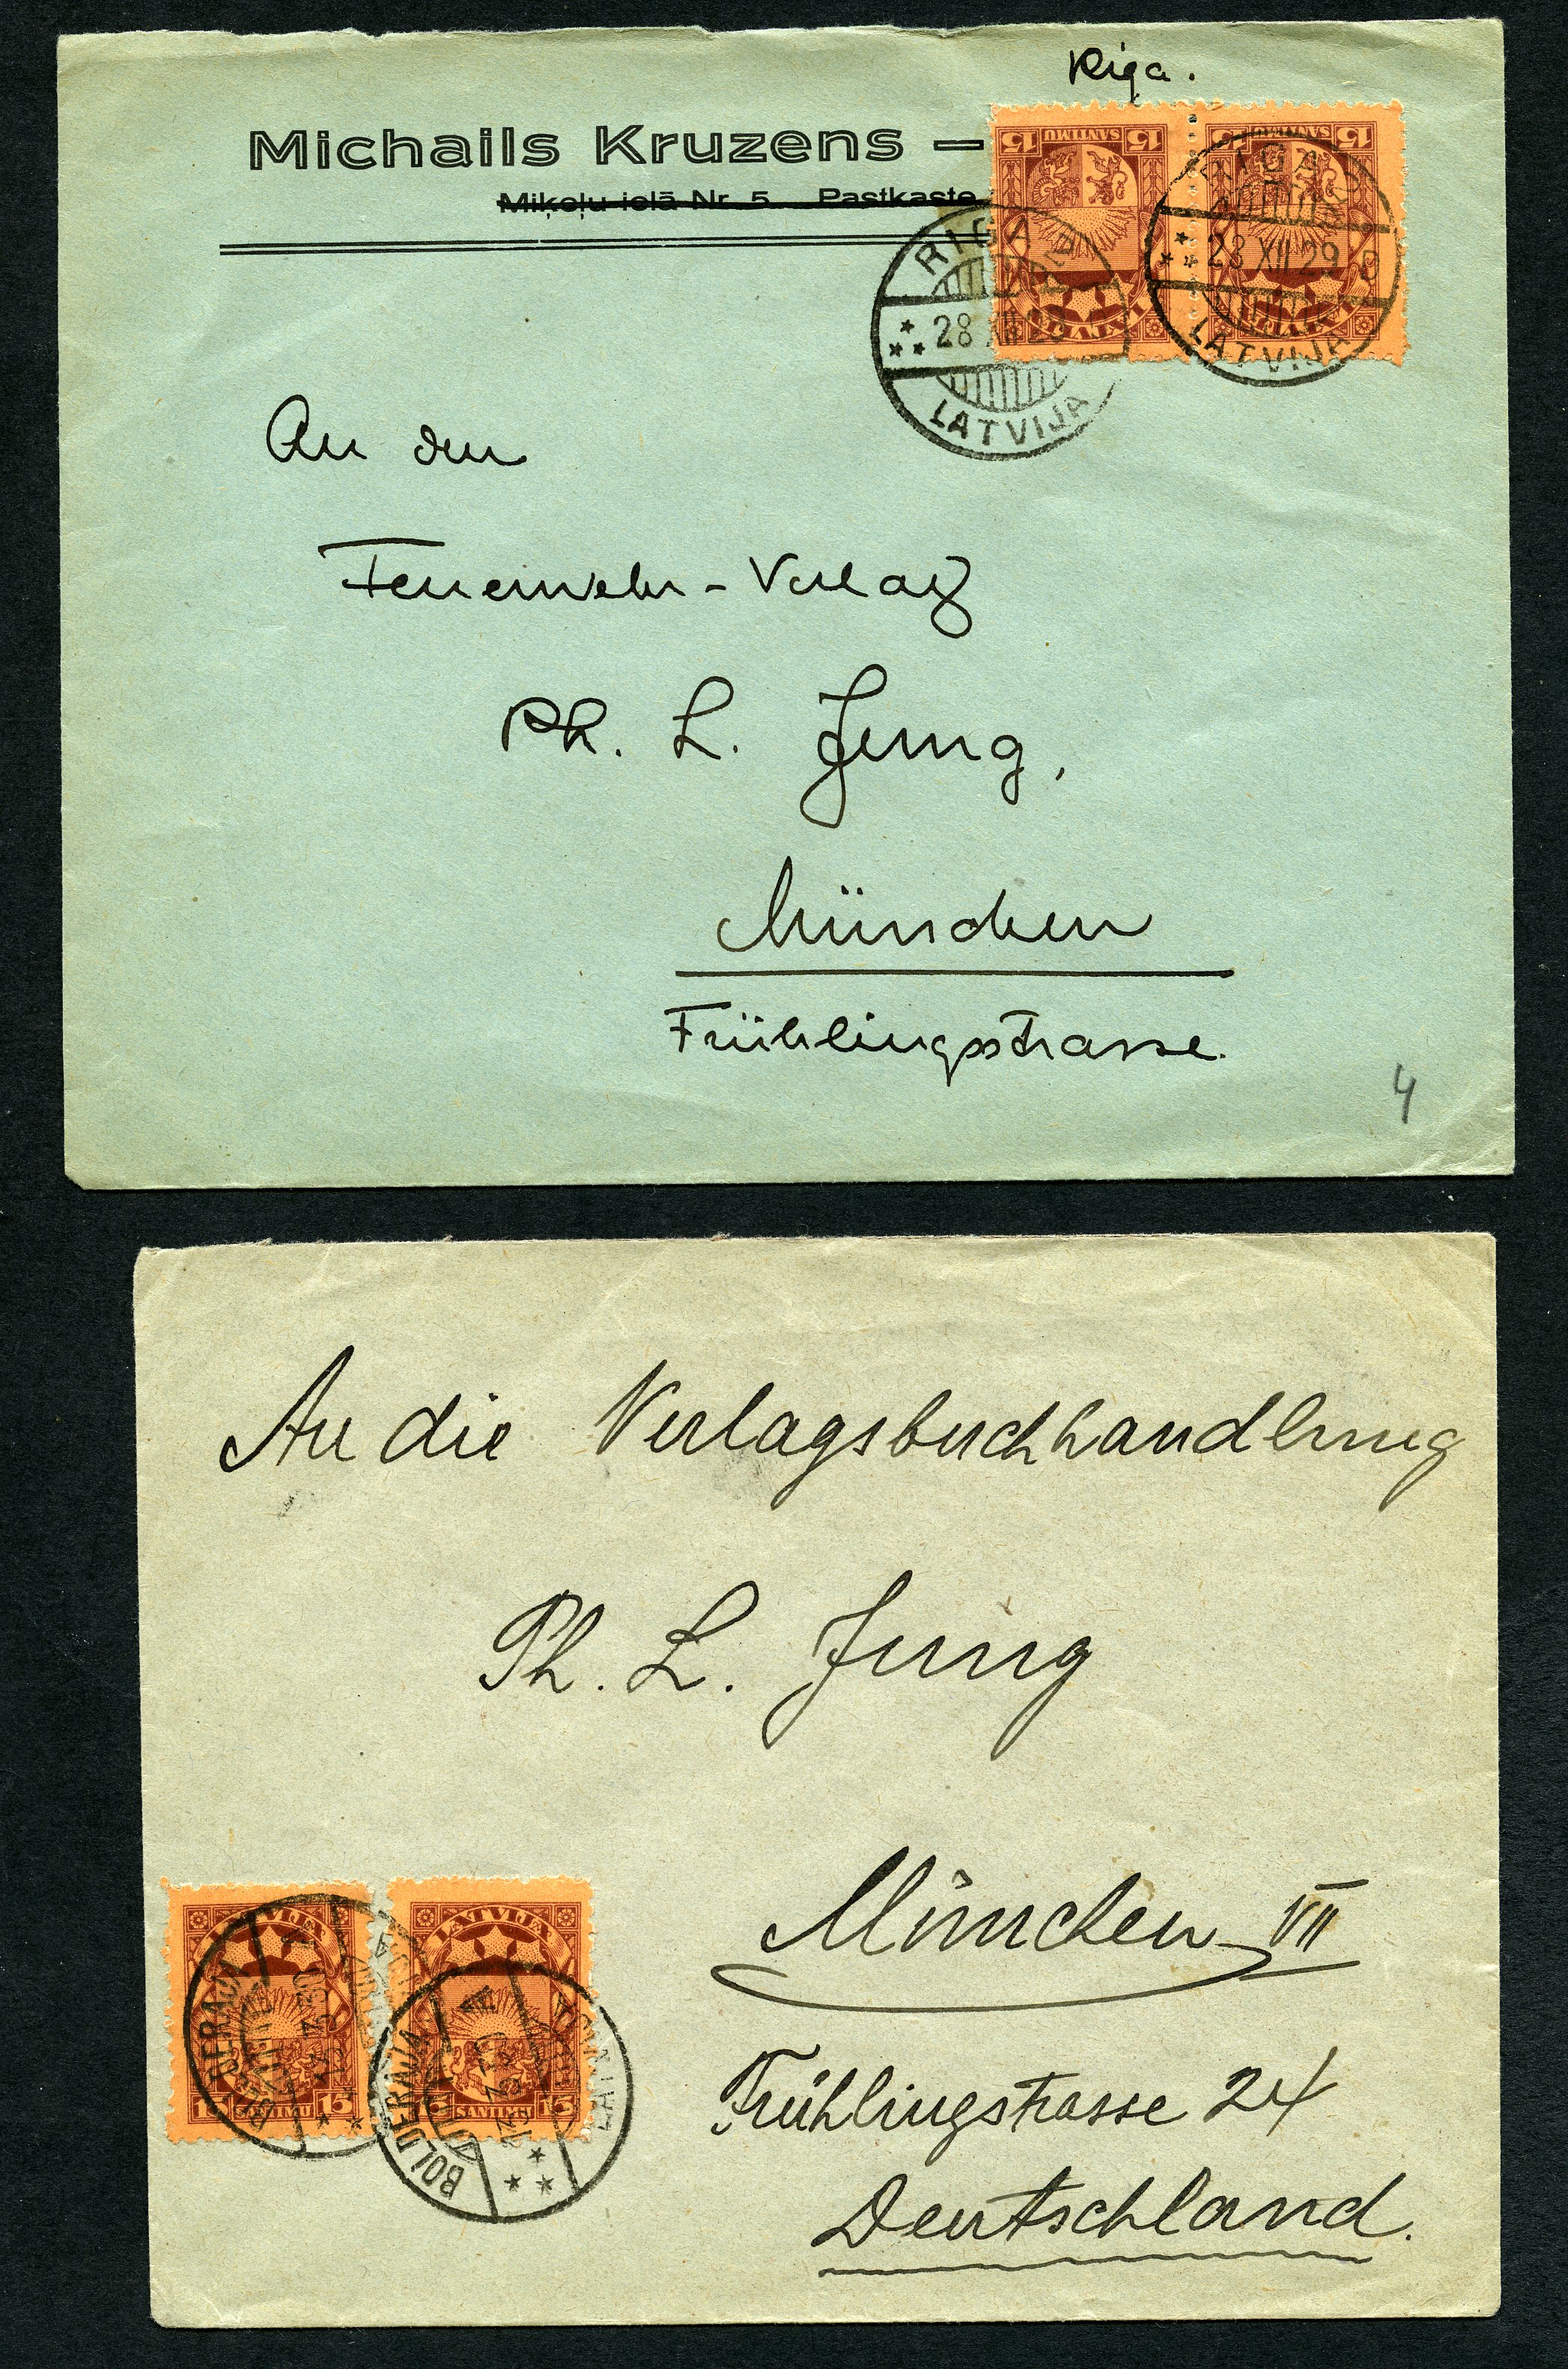 Riga.
Michails Kruzens –
Miķeļu ielā Nr. 5 Pastkaste
15 SANTIMU 15
15 SANTIMU 15
LATVIJA
LATVIJA
RIGA
28 XII 29
LATVIJA
RIGA
28 XII 29
LATVIJA
An den
Feuerwehr-Verlag
Ph. L. Jung,
München
Frühlingsstrasse.
4
An die Verlagsbuchhandlung
Ph. L. Jung
München VII
Frühlingstrasse 24
Deutschland.
LATVIJA
LATVIJA
15 SANTIMU 15
15 SANTIMU 15
BOLDERAJA
BOLDERAJA
LATVIJA